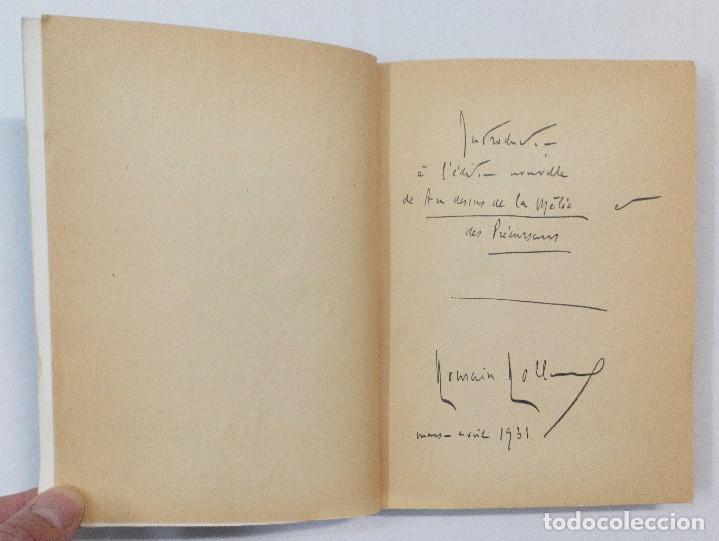 Introduct.—
à l'édit.— nouvelle
de Au dessus de la Mêlée et
des Précurseurs
Romain Rolland
mars-avril 1931
todocoleccion.net